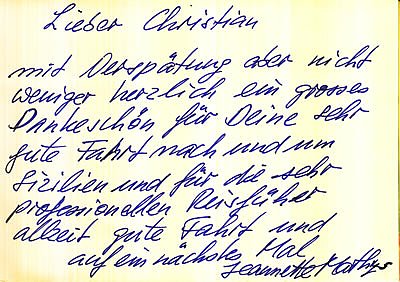 Lieber Christian
mit Verspätung aber nicht
weniger herzlich ein grosses
Dankeschön für Deine sehr
gute Fahrt nach und um
Sizilien und für die sehr
professionellen Reisführer
alleit gute Fahrt und
auf ein nächstes Mal
Jeannette Mathys